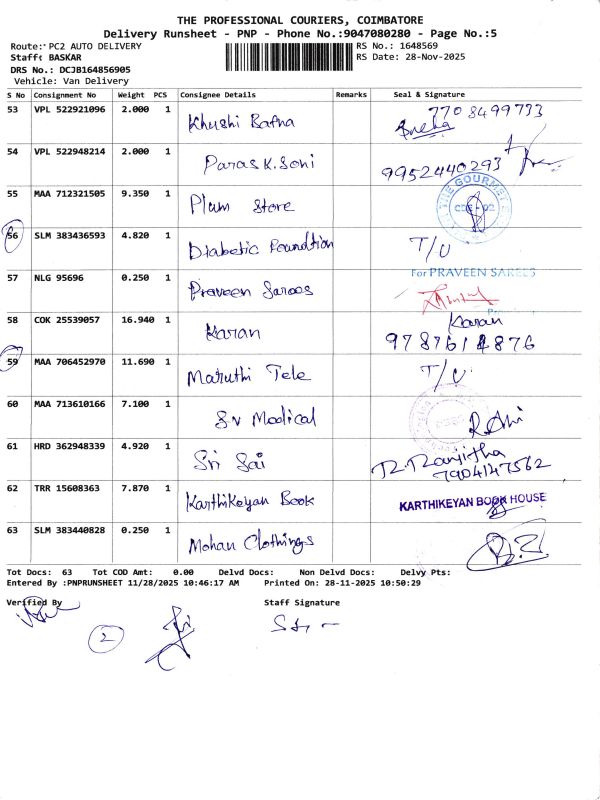 THE PROFESSIONAL COURIERS, COIMBATORE
Delivery Runsheet - PNP - Phone No.:9047080280 - Page No.:5
Route: PC2 AUTO DELIVERY RS No.: 1648569
Staff: BASKAR RS Date: 28-Nov-2025
DRS No.: DCJB164856905
Vehicle: Van Delivery
S No Consignment No Weight PCS Consignee Details Remarks Seal & Signature
53 VPL 522921096 2.000 1 Khushi Bafna 7708499733
Sneha
54 VPL 522948214 2.000 1 Paras K. Soni 9952440293
55 MAA 712321505 9.350 1 Plum Store THE GOURMET
56 SLM 383436593 4.820 1 Diabetic Foundtion T/U
57 NLG 95696 0.250 1 Praveen Sarees For PRAVEEN SAREES
58 COK 25539057 16.940 1 Karan Karan
59 MAA 706452970 11.690 1 Maruthi Tele T/U
60 MAA 713610166 7.100 1 Sv Medical
61 HRD 362948339 4.920 1 Sri Sai R. Ranjitha
7904147562
62 TRR 15608363 7.870 1 Karthikeyan Book KARTHIKEYAN BOOK HOUSE
63 SLM 383440828 0.250 1 Mohan Clothings
Tot Docs: 63 Tot COD Amt: 0.00 Delvd Docs: Non Delvd Docs: Delvy Pts:
Entered By :PNPRUNSHEET 11/28/2025 10:46:17 AM Printed On: 28-11-2025 10:50:29
Verified By Staff Signature
2